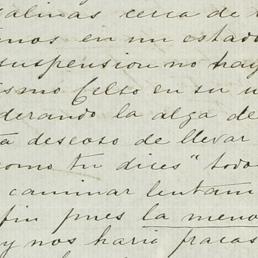 salinas cerca de
mos en un estado
suspension no hay
ismo Celso en su
derando la alga de
ta deseoso de llevar
como tu dices" todo
caminar lentam
fin pues la meno
y nos haria fracas